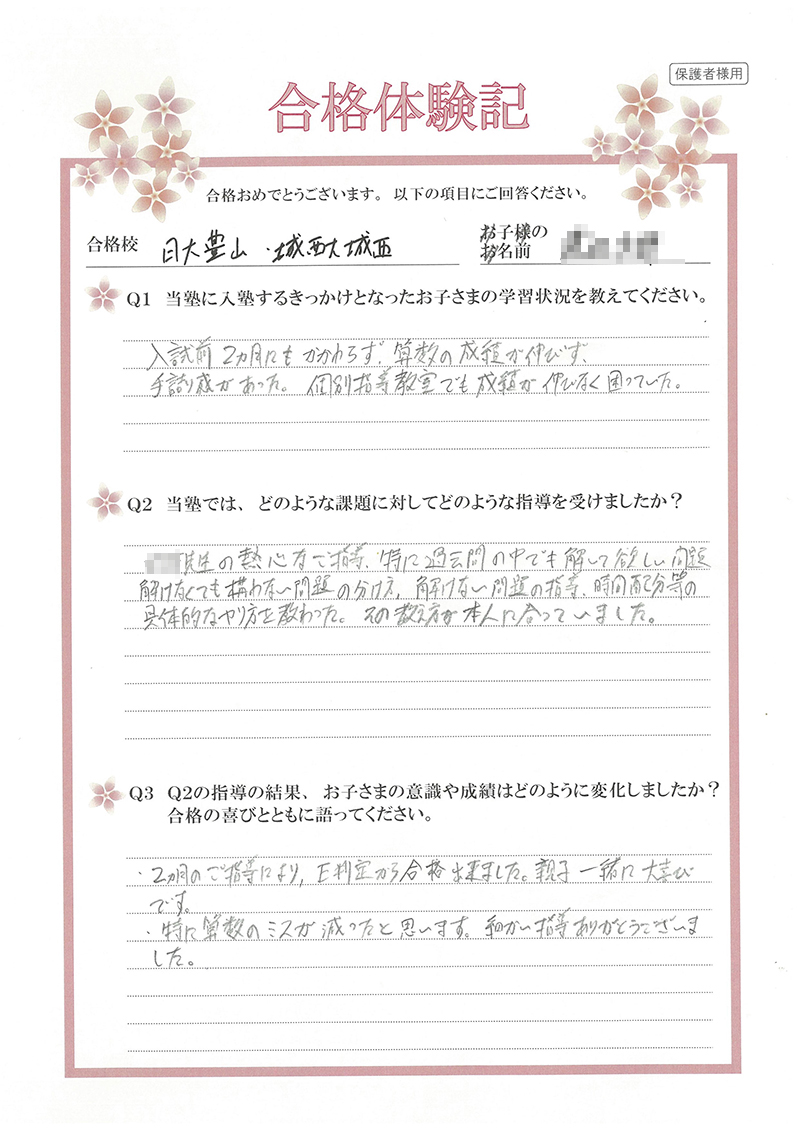 保護者様用
合格体験記
合格おめでとうございます。以下の項目にご回答ください。
合格校 日大豊山・城西大城西
お子様の
お名前
Q1 当塾に入塾するきっかけとなったお子さまの学習状況を教えてください。
入試前2ヵ月にもかかわらず、算数の成績が伸びず、
手詰り感があった。個別指導教室でも成績が伸びなく困っていた。
Q2 当塾では、どのような課題に対してどのような指導を受けましたか？
先生の熱心なご指導、特に過去問の中でも解いて欲しい問題
解けなくても構わない問題の分け方、解けない問題の指導、時間配分等の
具体的なやり方を教わった。その教え方が本人に合っていました。
Q3 Q2の指導の結果、お子さまの意識や成績はどのように変化しましたか？
合格の喜びとともに語ってください。
・2ヵ月のご指導により、E判定から合格出来ました。親子一緒に大喜び
です。
・特に算数のミスが減ったと思います。細かい指導ありがとうございま
した。